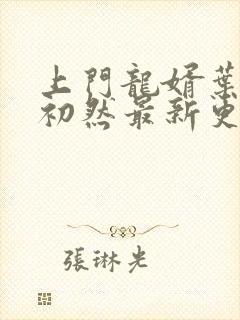 上門龍婿葉
初然最新更
張琳光